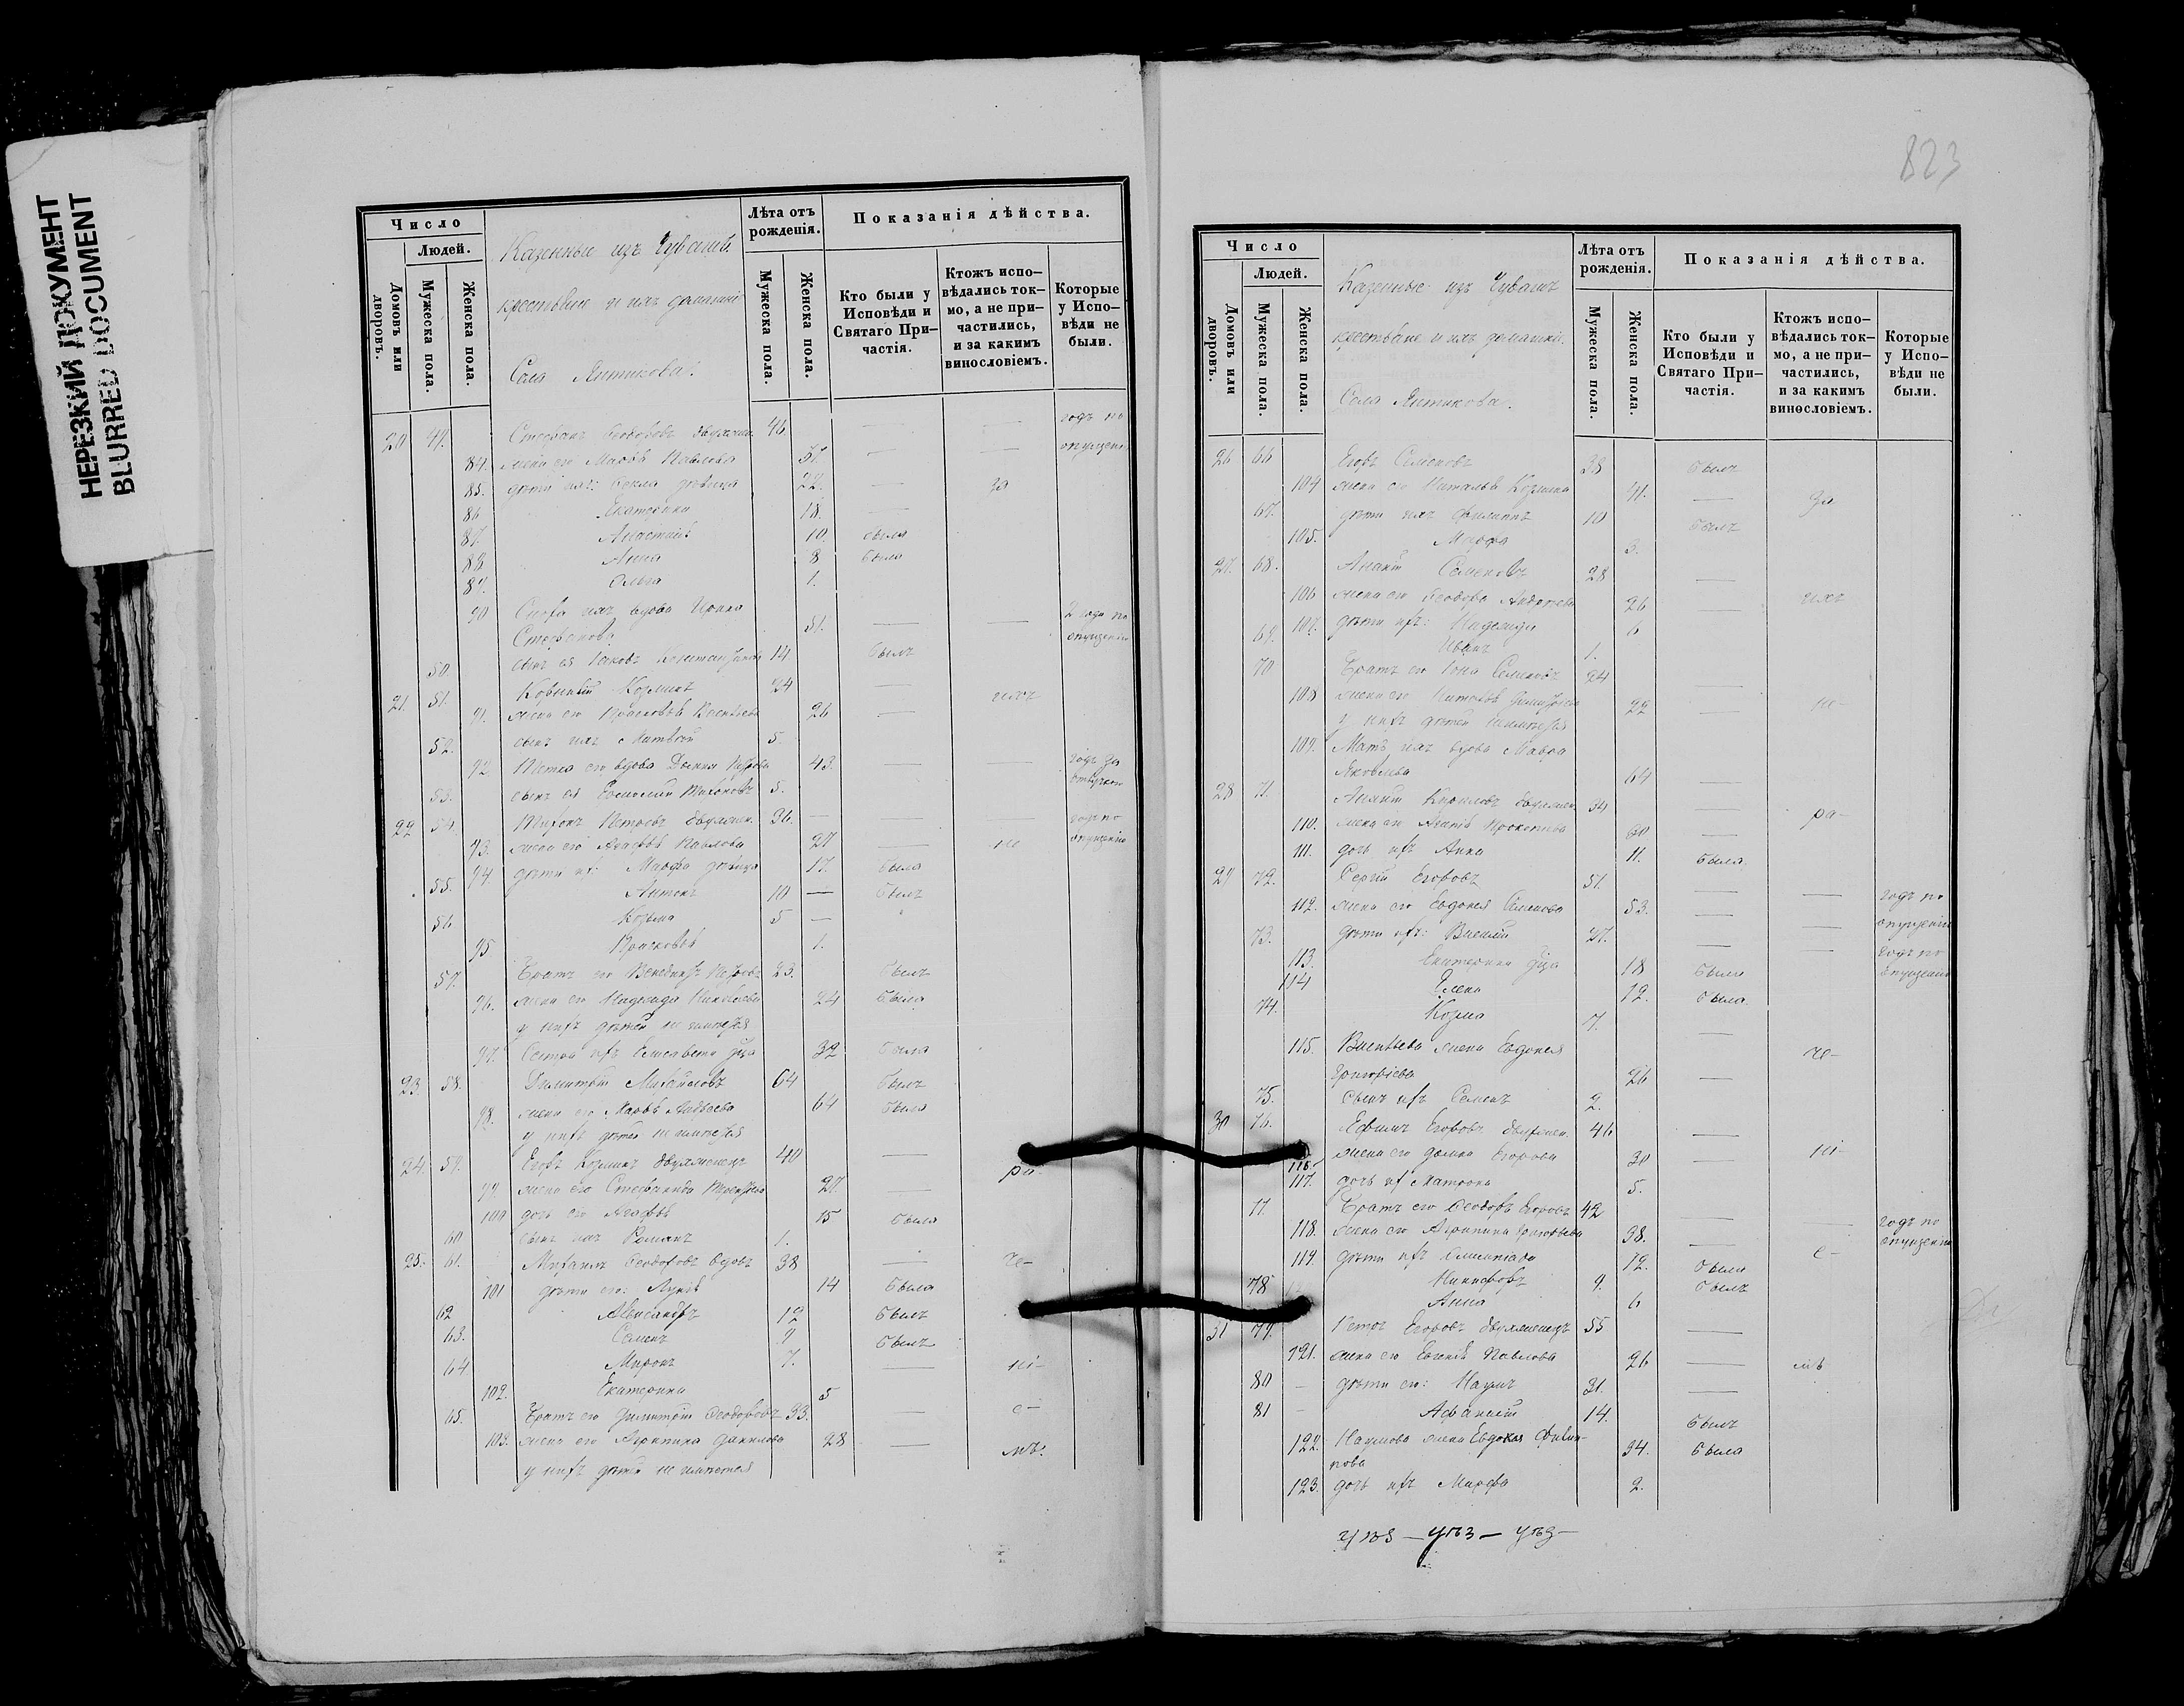 НЕРЕЗКИЙ ДОКУМЕНТ
BLURRED DOCUMENT
Число
Людей.
Домовъ или дворовъ.
Мужеска пола.
Женска пола.
Казенные изъ Чувашъ
крестьяне и ихъ домашніе
Села Янтикова.
Лѣта отъ рожденія.
Мужеска пола.
Женска пола.
Показанія дѣйства.
Кто были у Исповѣди и Святаго Причастія.
Ктожъ исповѣдались токмо, а не причастились, и за какимъ винословіемъ.
Которые у Исповѣди не были.
20 49. Стефанъ Ѳеодоровъ двужен. 46. — — годъ по
84. жена его Марѳа Павлова 57. — — опущен.
85. дѣти ихъ: Ѳекла дѣвица 22. — за
86 Екатерина 18. —
87. Анастасія 10. была
88 Анна 8 была
89. Ольга 1.
90 Сноха ихъ вдова Ирина
Стефанова 51. — — 2 года по опущенію
50. сынъ ея Іаковъ Константиновъ 14 былъ
21. 51. Козминъ 24 —
91. жена его Прасковья Васильева 26 —
52. сынъ ихъ Матѳей 5.
92. Тетка его вдова Домна Петрова 43. — — годъ за
53. сынъ ея Тихоновъ 5.
22 54. Тихонъ Петровъ двужен. 36. — — — годъ по
93. жена его Агаѳья Павлова 27 — ни опущенію
94. дѣти их: Марѳа дѣвица 17. была
55. Антонъ 10 — былъ
56 Козьма 5 —
95 Прасковья 1.
57. Братъ его Венедиктъ Петровъ 23. былъ
96. жена его Надежда Николаева 24 была
у нихъ дѣтей не имѣется
97. Сестра ихъ Елисавета д҃ца 32 была
23. 58. Димитрій Михайловъ 64 былъ
98. жена его Марья Авдѣева 64 была
у нихъ дѣтей не имѣется
24 59. Егоръ Козминъ двуженецъ 40 —
99. жена его Стефанида 27. — ра
100 дочь его Агаѳья 15 была
60 сынъ ихъ Романъ 1.
25. 61. Михаилъ Ѳеодоровъ вдовъ 38 — че-
101 дѣти его: Лукія 14 была
62 Александръ 12 былъ
63. Семенъ 9 былъ
64 Миронъ 7. — ні-
102. Екатерина 5
65. Братъ его Димитрій Ѳеодоровъ 33. — е-
103. жена его Агрипина Данилова 28 — мъ.
у нихъ дѣтей не имѣется
823
Число
Людей.
Домовъ или дворовъ.
Мужеска пола.
Женска пола.
Казенные изъ Чувашъ
крестьяне и ихъ домашніе.
Села Янтикова.
Лѣта отъ рожденія.
Мужеска пола.
Женска пола.
Показанія дѣйства.
Кто были у Исповѣди и Святаго Причастія.
Ктожъ исповѣдались токмо, а не причастились, и за какимъ винословіемъ.
Которые у Исповѣди не были.
26 66 Егоръ Семеновъ 38 былъ
104 жена его Наталья Козмина 41. — за
67. дѣти ихъ Филиппъ 10 былъ
105. Марѳа 3.
27. 68. Семеновъ 28 —
106 жена его Ѳеодора Андреева 26 —
107. дѣти ихъ: Надежда 6
69. Иванъ 1.
70 Братъ его Іона Семеновъ 24 —
108 жена его Наталья 22 — не-
у нихъ дѣтей не имѣется
109. Мать ихъ вдова Мавра
Яковлева 64 —
28 71. Кириловъ двужен. 34 — ра-
110. жена его Прокопьева 30 —
111. дочь ихъ Анна 11. была
29 72. Сергій Егоровъ 51. — — годъ по
112. жена его Евдокія Семенова 53. — — опущенію
73. дѣти ихъ: Василій 27. — — годъ по
113. Екатерина д҃ца 18 была опущенію
114 Елена 12. была.
74. Козма 7. —
115. Васильева жена Евдокія че-
Григоріева 26 —
75. сынъ ихъ Семенъ 2.
30 76. Ефимъ Егоровъ двужен. 46 —
116. жена его Домна Егорова 30 — ні-
117. дочь их Матрона 5.
77. Братъ его Ѳеодоръ Егоровъ 42 — — годъ по
118. жена его Агрипина Григорьева 38. — опущенію
119. дѣти ихъ Олимпіада 12. была е-
78 Никифоръ 9. былъ
Анна 6
31 79. Петръ Егоровъ двуженецъ 55 —
121. жена его Евгенія Павлова 26 — мъ
80 — дѣти его: Наумъ 31. —
81 — Аѳанасій 14. былъ
122. Наумова жена Евдокія Филип-
пова 34. была
123. дочь ихъ Марѳа 2.